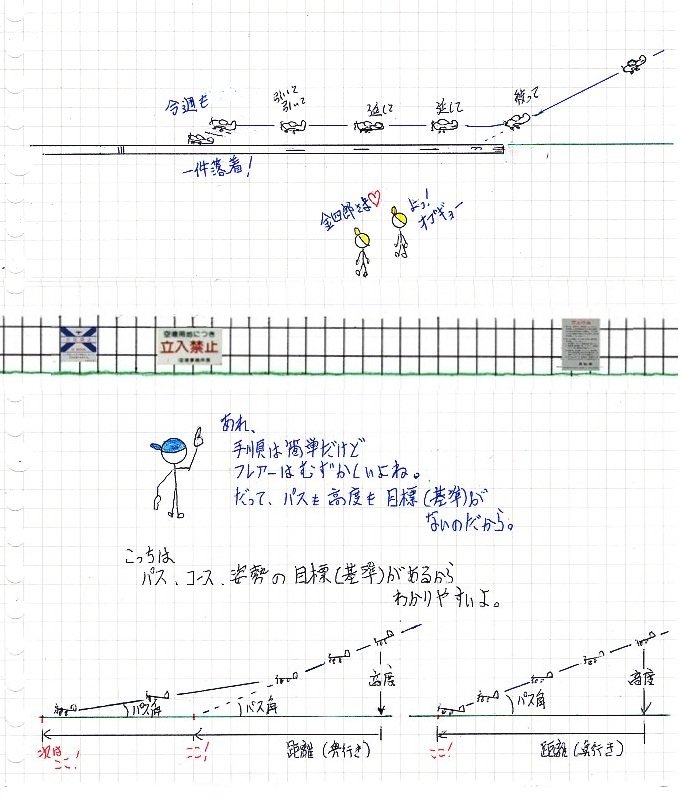 今週も
引いて
引いて
返して
返して
絞って
一件落着!
金四郎さま♡
よっ!
オブギョー
空港用地につき
立入禁止
あれ、
手順は簡単だけど
フレアーはむずかしいよね。
だって、パスも高度も目標(基準)が
ないのだから。
こっちは
パス、コース、姿勢の目標(基準)があるから
わかりやすいよ。
高度
パス角
パス角
次は
ここ!
ここ!
距離(奥行き)
高度
パス角
ここ!
距離(奥行き)